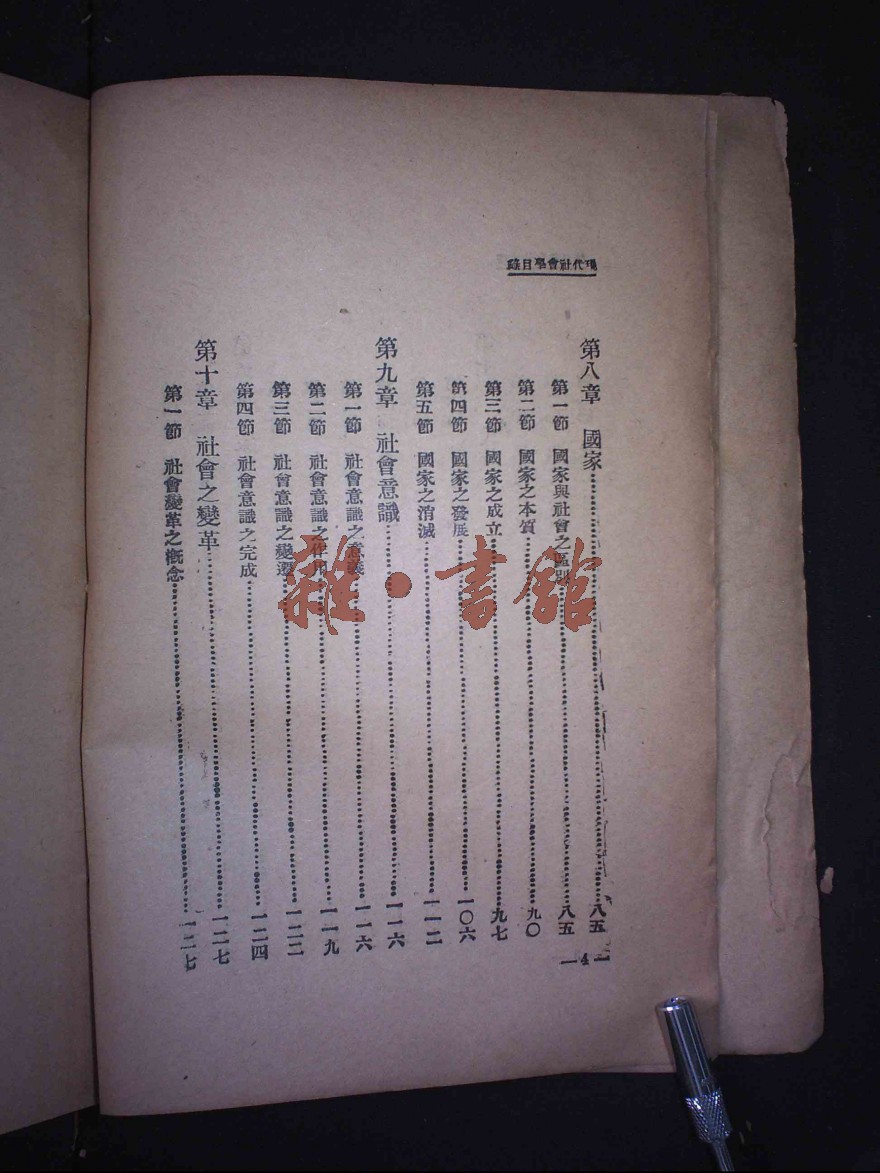 現代社會學目錄
第八章　國家……八五
第一節　國家與社會之區別……八五
第二節　國家之本質……九〇
第三節　國家之成立……九七
第四節　國家之發展……一〇六
第五節　國家之消滅……一一二
第九章　社會意識……一一六
第一節　社會意識之意義……一一六
第二節　社會意識之作用……一一九
第三節　社會意識之變遷……一二二
第四節　社會意識之完成……一二四
第十章　社會之變革……一二七
第一節　社會變革之概念……一二七
— 4 —
雜·書館